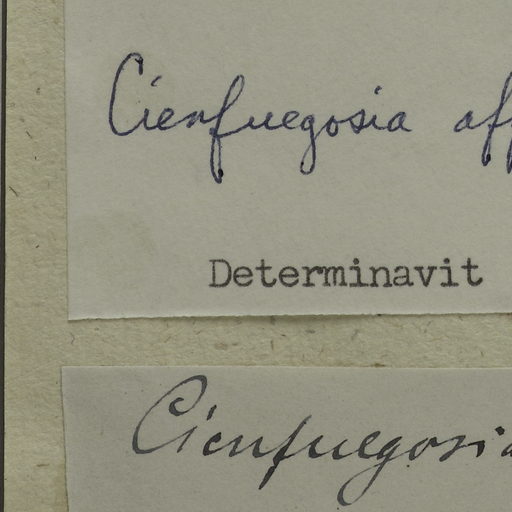 Cienfuegosia aff
Determinavit
Cienfuegosia